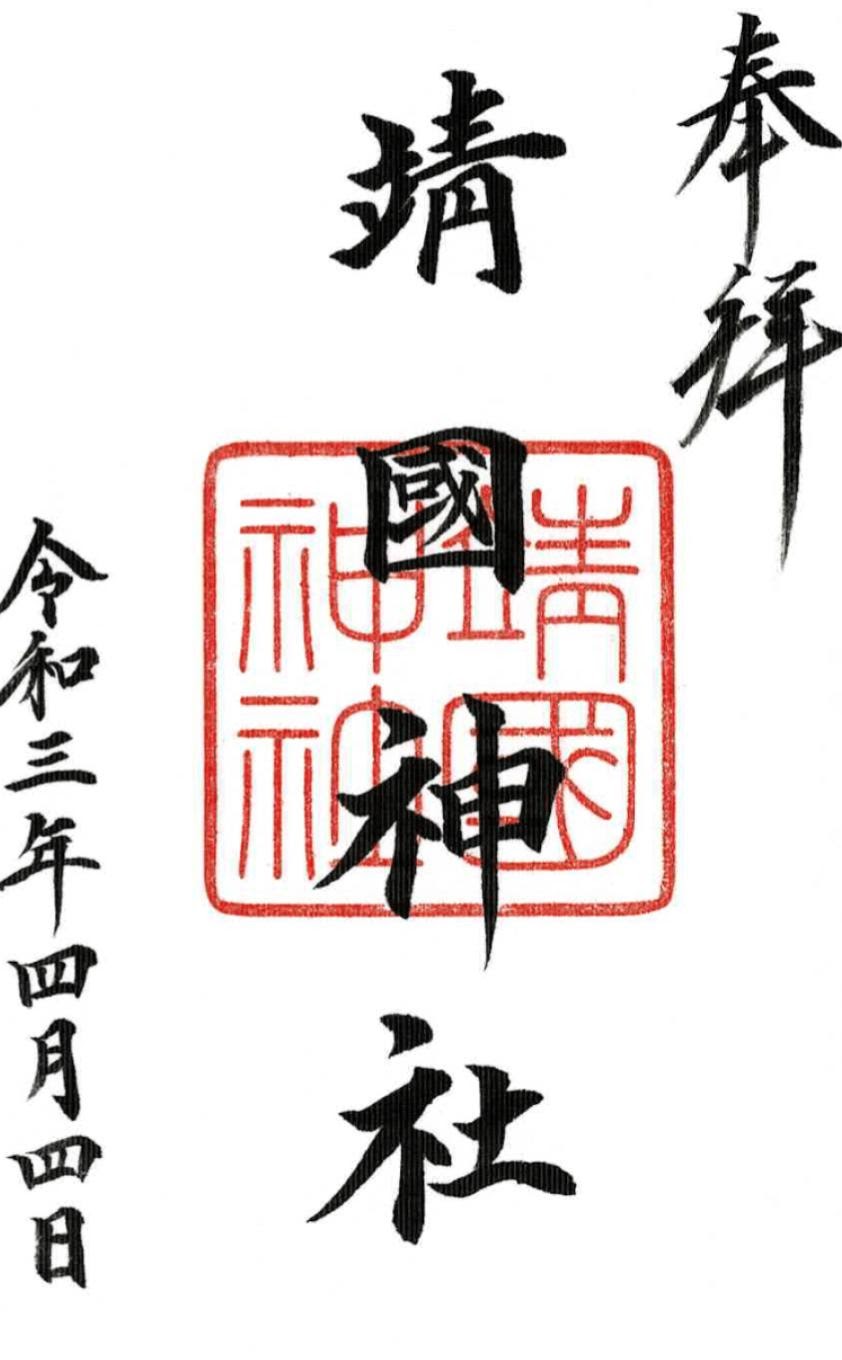 奉拝
靖國神社
靖國
神社
令和三年四月四日